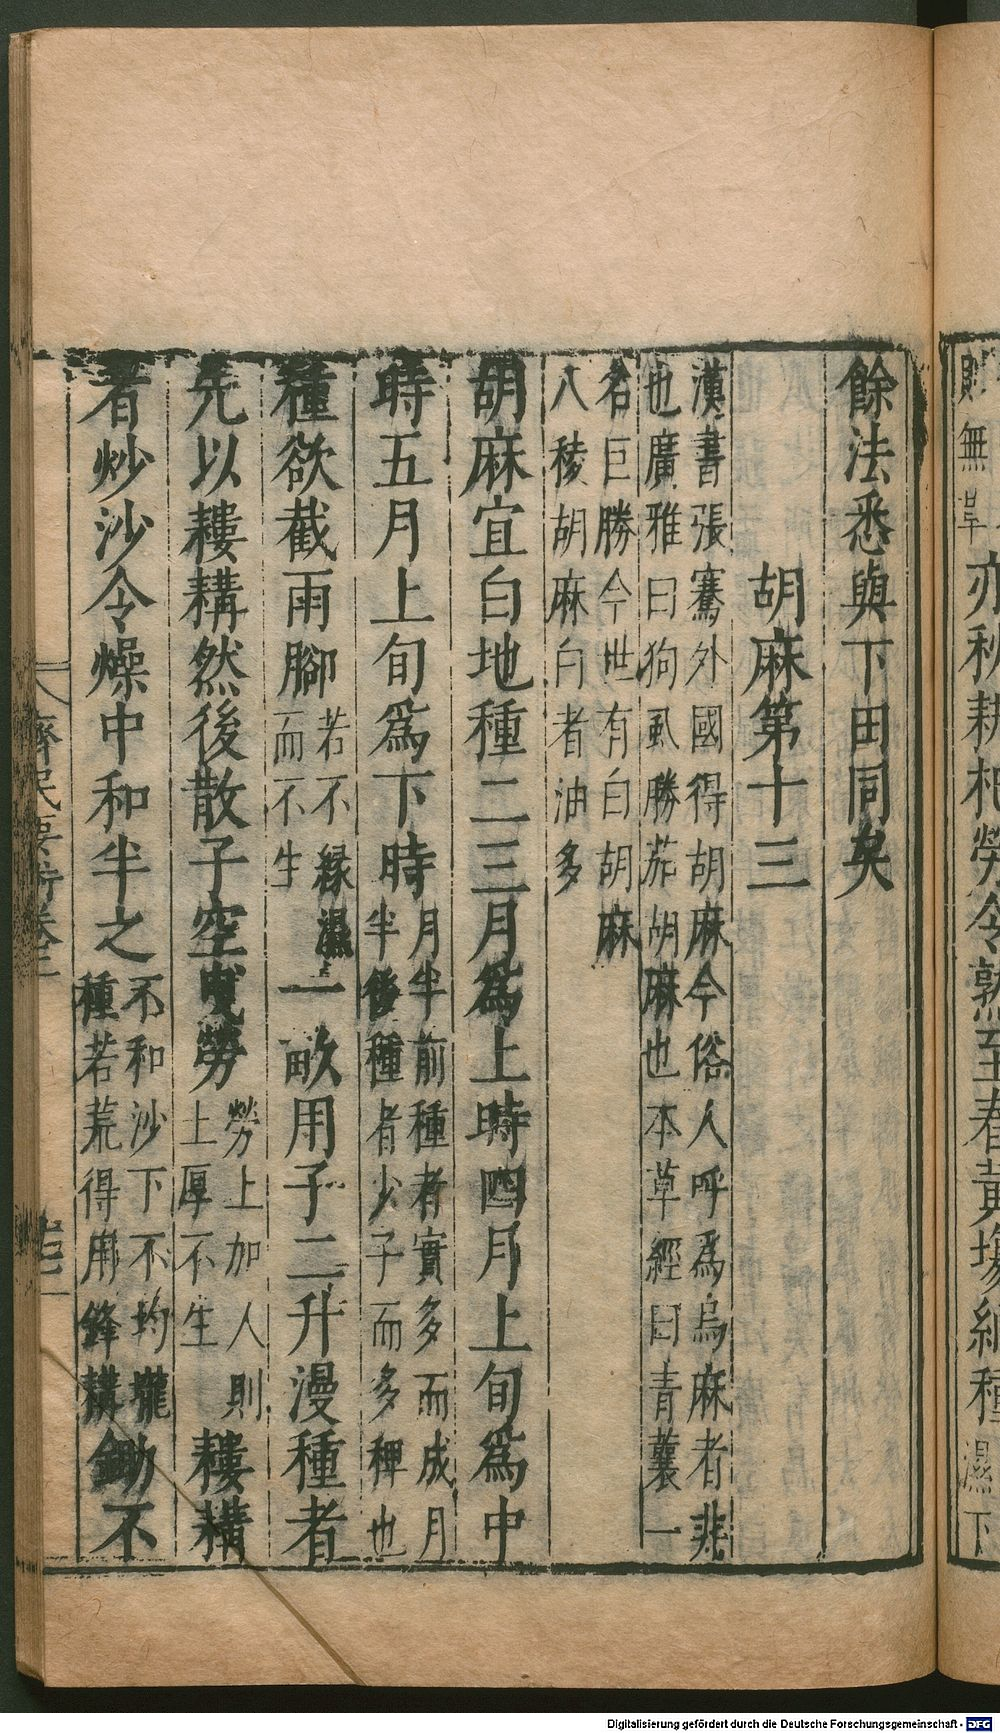 亦秋耕杷勞令熟至春黃塲納種濕下
餘法悉與下田同矣
胡麻第十三
漢書張騫外國得胡麻今俗人呼爲烏麻者非
也廣雅曰狗虱勝茄胡麻也本草經曰青蘘一
名巨勝今世有白胡麻
八稜胡麻白者油多
胡麻宜白地種二三月爲上時四月上旬爲中
時五月上旬爲下時月半前種者實多而成月半後種者少子而多稗也
種欲截雨腳若不緣濕而不生一畝用子二升漫種者
先以耬耩然後散子空曵勞勞上加人則土厚不生耬耩
者炒沙令燥中和半之不和沙下不均壠種若荒得用鋒耩鋤不
齊民要術卷二
Digitalisierung gefördert durch die Deutsche Forschungsgemeinschaft - DFG